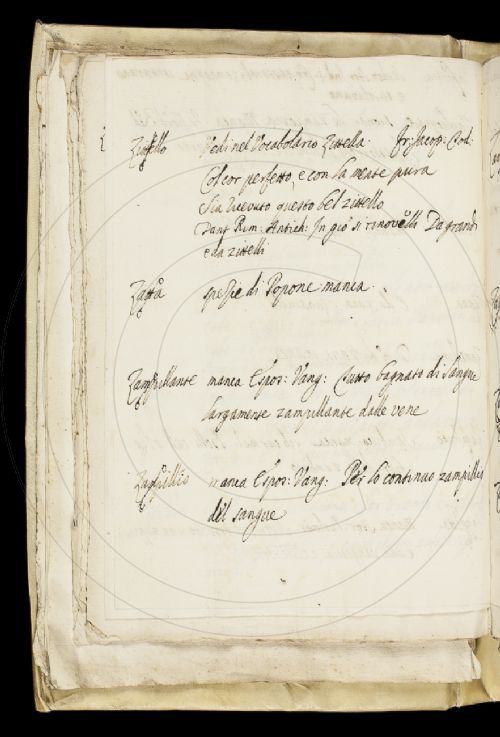 Zittello Vedi nel Vocabolario Zittella. Fr: Jacop: Tod:
Col cor perfetto, e con la mente pura
Sia ricevuto questo bel zittello
Dant. Rim: Antich: In giò si rinovelli Da grandi
e da zittelli
Zatta spezie di Popone manca.
Zampillante manca Espos: Vang: Tutto bagnato di sangue
largamente zampillante dalle vene
Zampillio manca Espos: Vang: Per lo continuo zampillio
del sangue